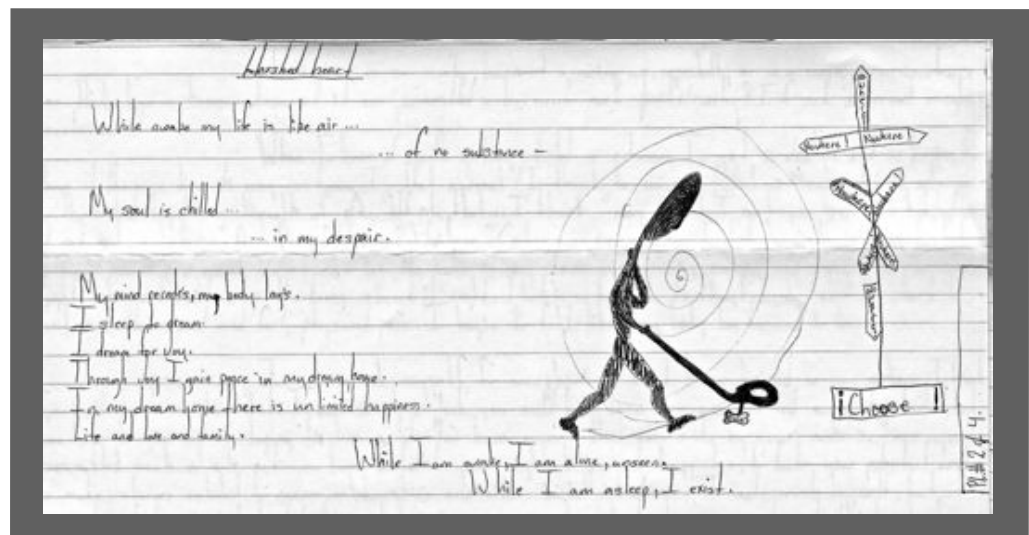 While awake my life is like air ...
... of no substance –
My soul is chilled ...
... in my despair.
My mind recedes, my body lays.
I sleep to dream.
I dream for
Through I gain peace in my dream home.
In my dream home there is unlimited happiness.
Life and love and family.
While I am awake, I am alone, unseen.
While I am asleep, I exist.
Nowhere! Nowhere!
Nowhere Nowhere!
Nowhere
¡Choose!
Pt# 2 of 4.